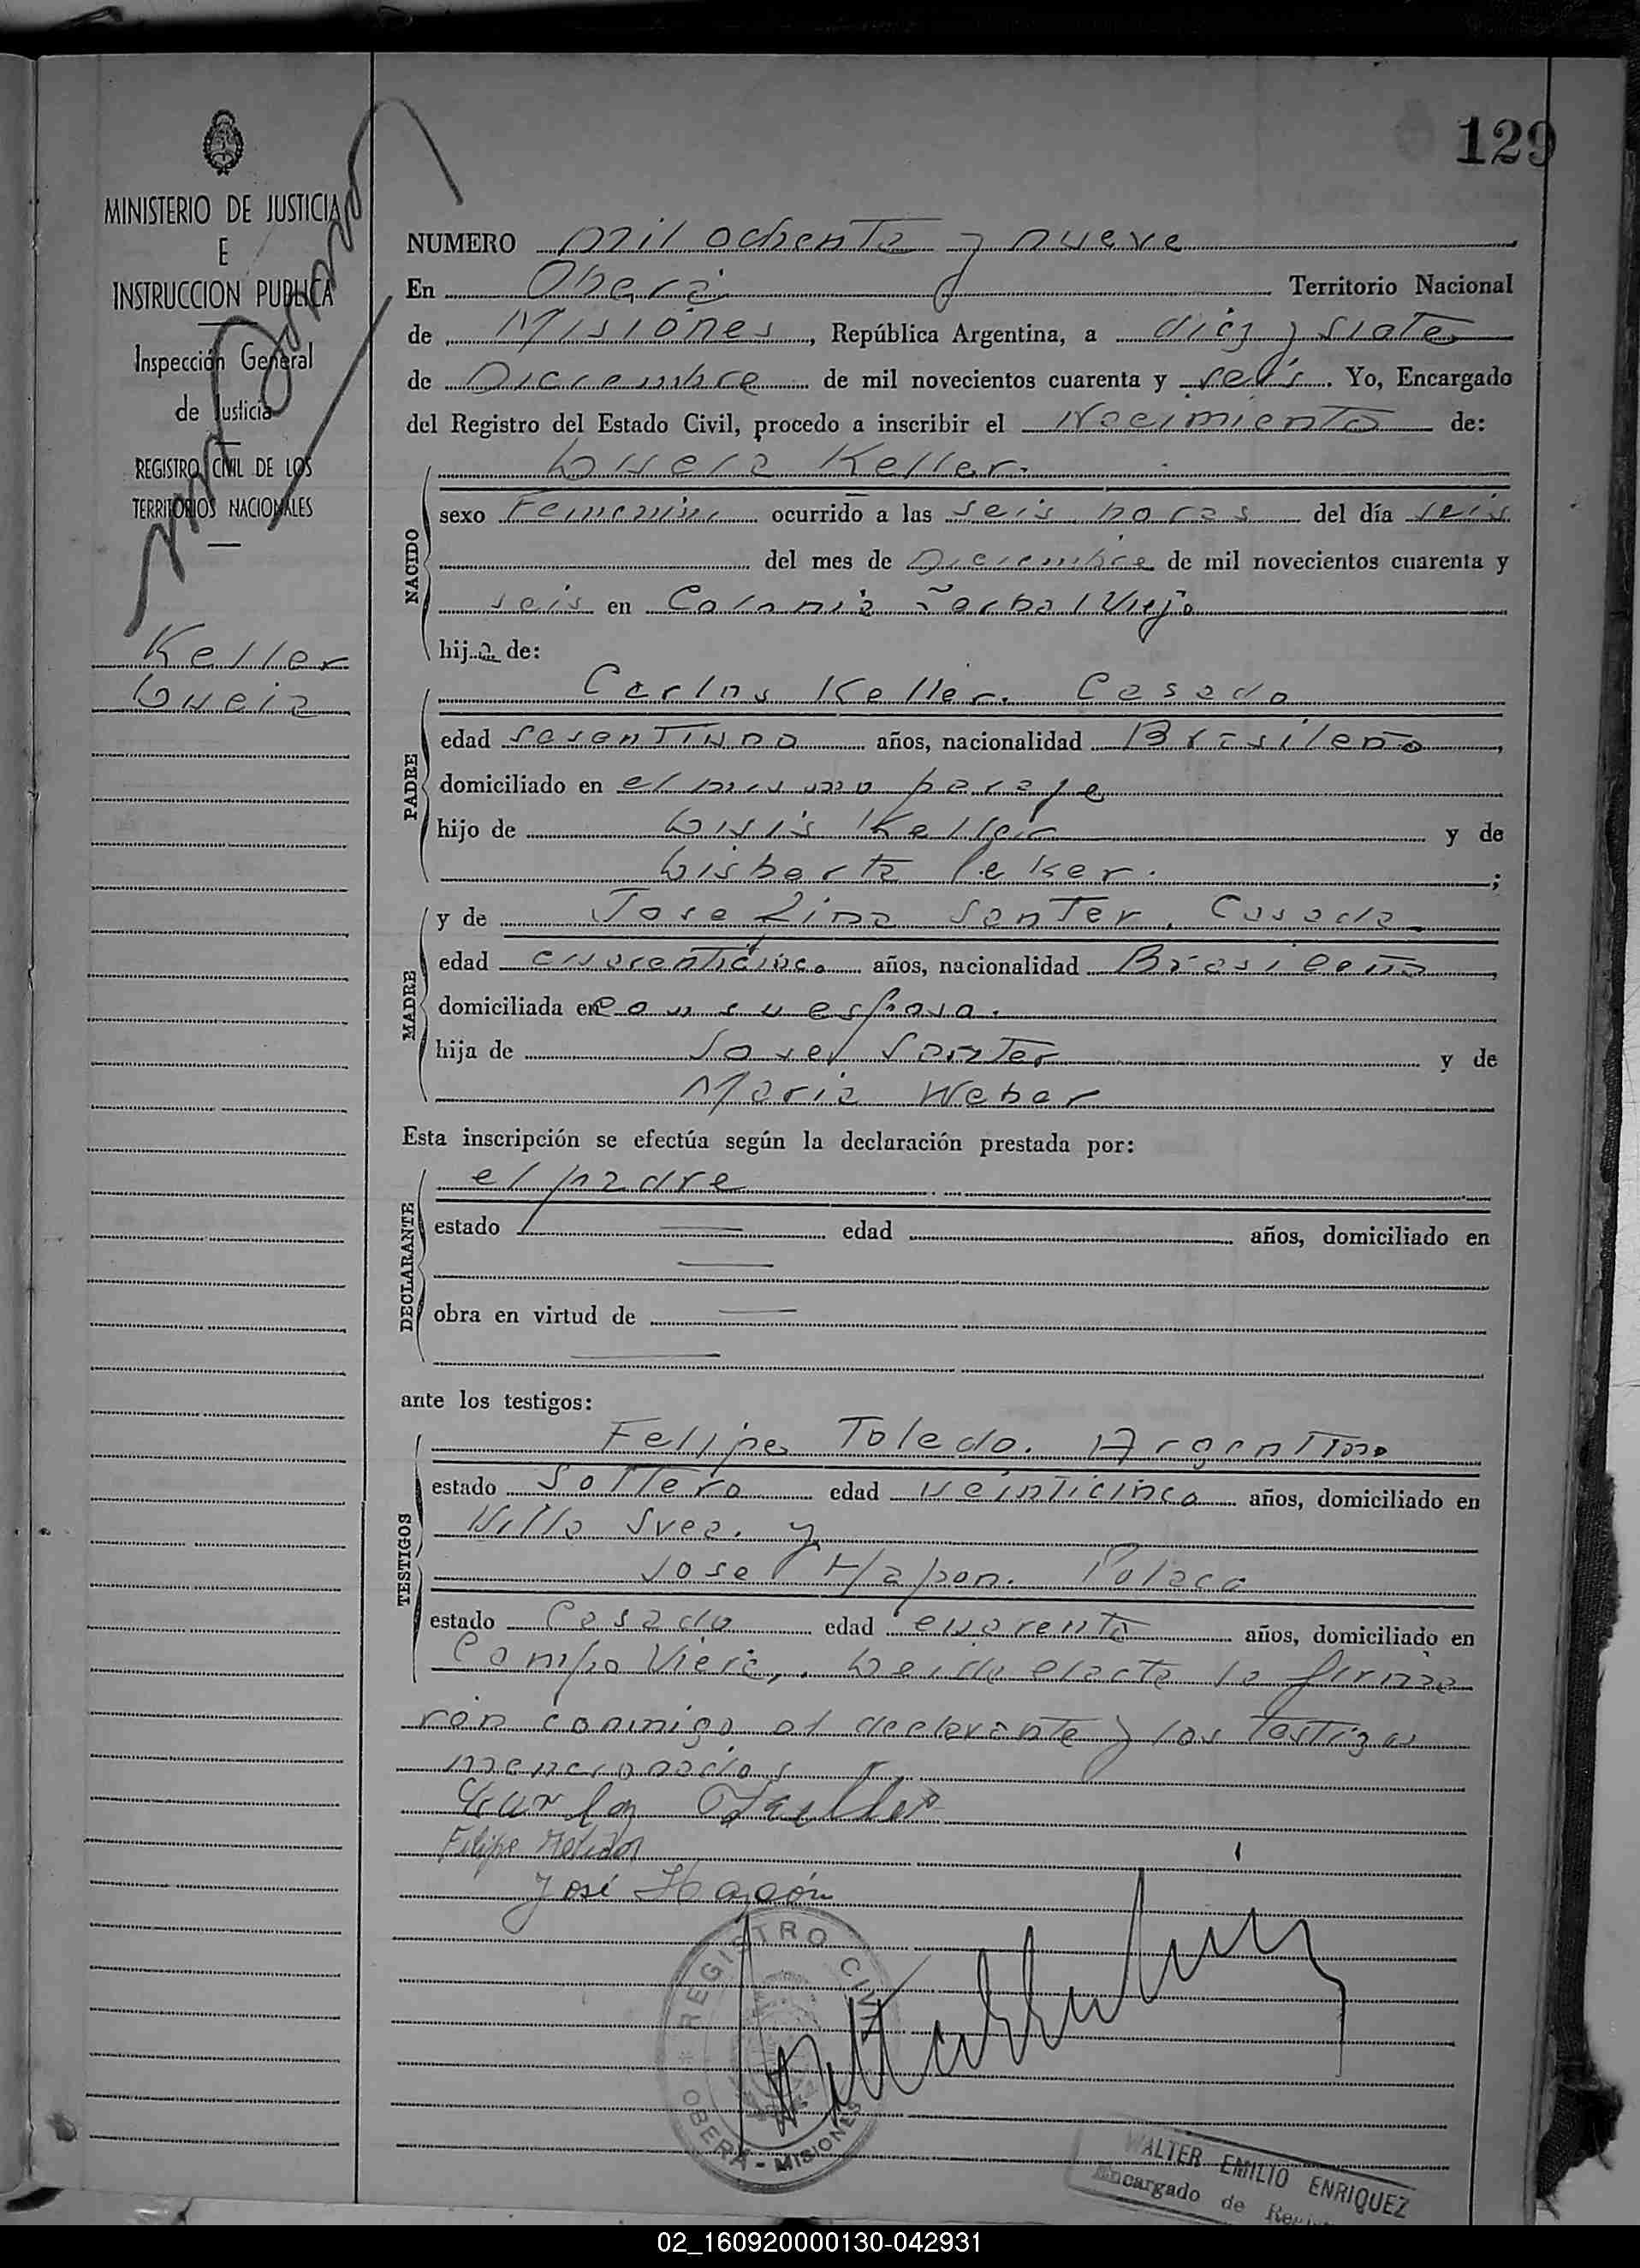 129
MINISTERIO DE JUSTICIA
E
INSTRUCCION PUBLICA
Inspección General
de Justicia
REGISTRO CIVIL DE LOS
TERRITORIOS NACIONALES
Keller
NUMERO mil ochenta y nueve
En Oberá Territorio Nacional
de Misiones, República Argentina, a diez y siete
de Diciembre de mil novecientos cuarenta y seis. Yo, Encargado
del Registro del Estado Civil, procedo a inscribir el Nacimiento de:
NACIDO
Keller.
sexo Femenino ocurrido a las seis horas del día seis
del mes de Diciembre de mil novecientos cuarenta y
seis en Colonia Yerbal Viejo
hija de:
PADRE
Carlos Keller. Casado
edad sesentiuno años, nacionalidad Brasileño,
domiciliado en el mismo paraje
hijo de Luis Keller y de
Lisberta Peker.;
MADRE
y de Josefina Santer. Casada
edad cuarenticinco años, nacionalidad Brasileña,
domiciliada en con su esposo.
hija de José Santer y de
Maria Weber
Esta inscripción se efectúa según la declaración prestada por:
DECLARANTE
el padre
estado edad años, domiciliado en
obra en virtud de
ante los testigos:
TESTIGOS
Felipe Toledo. Argentino
estado Soltero edad veinticinco años, domiciliado en
Villa Svea. y
Jose Hapon. Polaco
estado Casado edad cuarenta años, domiciliado en
Campo Viera,. Leida el acta la firma
ron conmigo el declarante y los testigos
mencionados
Carlos Keller
José Hapón
REGISTRO CIVIL
OBERÁ - MISIONES
WALTER EMILIO ENRIQUEZ
Encargado de
02_160920000130-042931